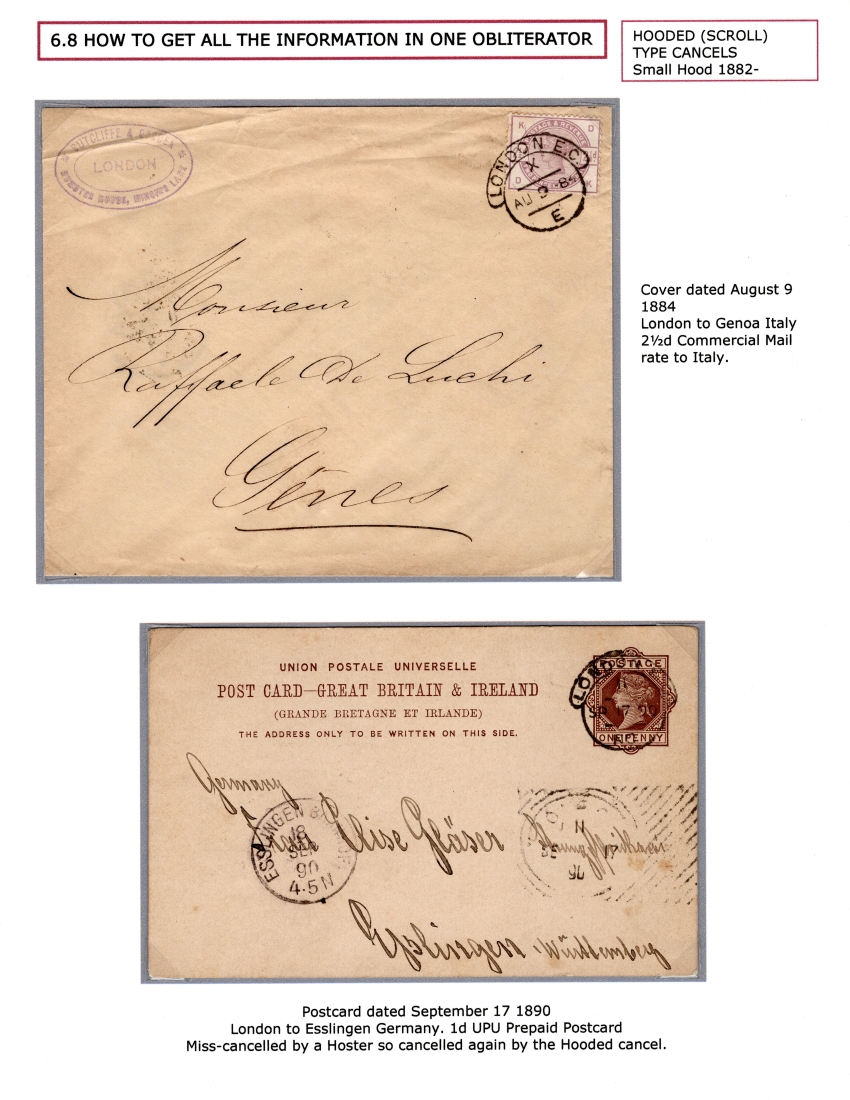 6.8 HOW TO GET ALL THE INFORMATION IN ONE OBLITERATOR
HOODED (SCROLL)
TYPE CANCELS
Small Hood 1882-
SUTCLIFFE &
LONDON
HOUSE, MINCING LANE
K D
D K
LONDON E.C.
X
AU 9 84
E
Monsieur
Raffaele De Luchi
Gênes
Cover dated August 9
1884
London to Genoa Italy
2½d Commercial Mail
rate to Italy.
UNION POSTALE UNIVERSELLE
POST CARD—GREAT BRITAIN & IRELAND
(GRANDE BRETAGNE ET IRLANDE)
THE ADDRESS ONLY TO BE WRITTEN ON THIS SIDE.
POSTAGE
ONE PENNY
SP 17 90
Germany
Elise Gläser
ESSLINGEN
18
SEP
90
4-5 N
Esslingen Württemberg
Postcard dated September 17 1890
London to Esslingen Germany. 1d UPU Prepaid Postcard
Miss-cancelled by a Hoster so cancelled again by the Hooded cancel.